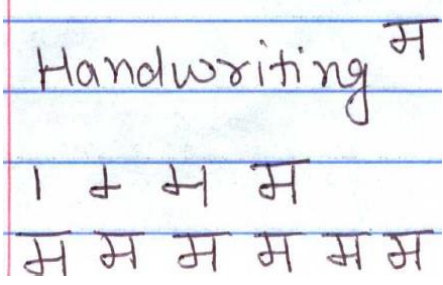 Handwriting म
। + म म
म म म म म म